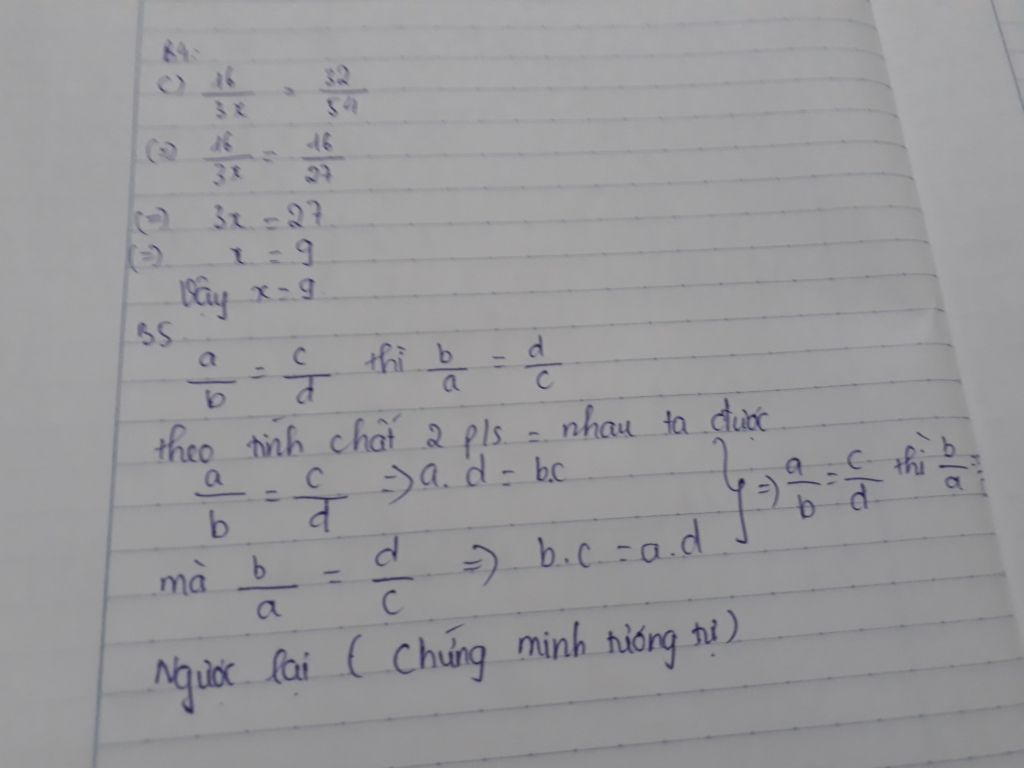 B4:
c) 16/3x = 32/54
(=) 16/3x = 16/27
(=) 3x = 27
(=) x = 9
Vậy x = 9
B5
a/b = c/d thì b/a = d/c
theo tính chất 2 p/s = nhau ta được
a/b = c/d => a.d = b.c } => a/b = c/d thì b/a =
mà b/a = d/c => b.c = a.d
Ngược lại ( Chứng minh tương tự )